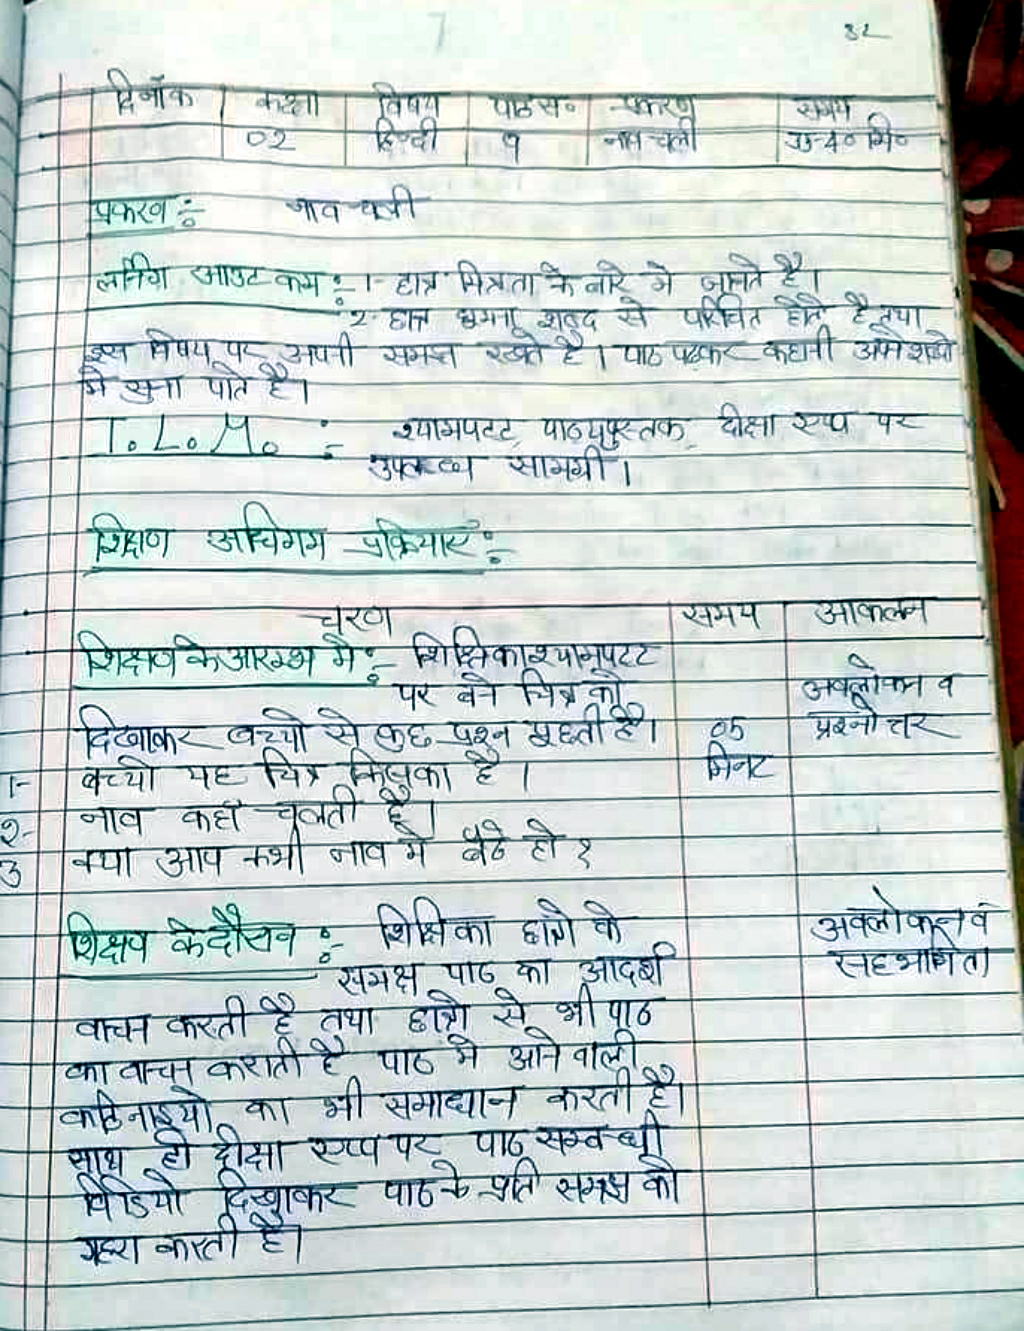 7
32
दिनाँक कक्षा विषय पाठ सं॰ प्रकरण समय
02 हिन्दी 9 नाव चली 35-40 मि॰
प्रकरण :- नाव चली
लर्निंग आउट कम :- 1- छात्र मित्रता के बारे मे जानते है।
2- छात्र शब्द से परिचित होते है तथा
इस विषय पर अपनी समझ रखते है। पाठ पढकर कहानी अपने शब्दो
मे सुना पाते है।
T. L. M. :- श्यामपटट, पाठ्यपुस्तक, दीक्षा एप्प पर
उपलब्ध सामग्री।
शिक्षण अधिगम प्रक्रियाएं :-
चरण समय आकलन
शिक्षण के आरम्भ मे :- शिक्षिका श्यामपटट
पर बने चित्र को अवलोकन व
दिखाकर बच्चो से कुछ प्रश्न पूछती है। 05 प्रश्नोत्तर
1- बच्चो यह चित्र किसका है। मिनट
2- नाव कहाँ चलती है।
3 क्या आप कभी नाव मे बैठे हो ?
शिक्षण के दौरान :- शिक्षिका छात्रो के अवलोकन वं
समक्ष पाठ का आदर्श सहभागिता
वाचन करती है तथा छात्रो से भी पाठ
का वाचन कराती है पाठ मे आने वाली
कठिनाइयो का भी समाधान करती है।
साथ ही दीक्षा एप्प पर पाठ सम्बन्धी
विडियो दिखाकर पाठ के प्रति समझ को
गहरा करती है।